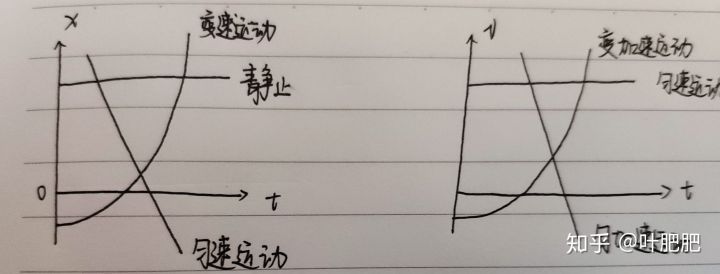 x
变速运动
静止
0
t
匀速运动
v
变加速运动
匀速运动
t
知乎 @叶肥肥